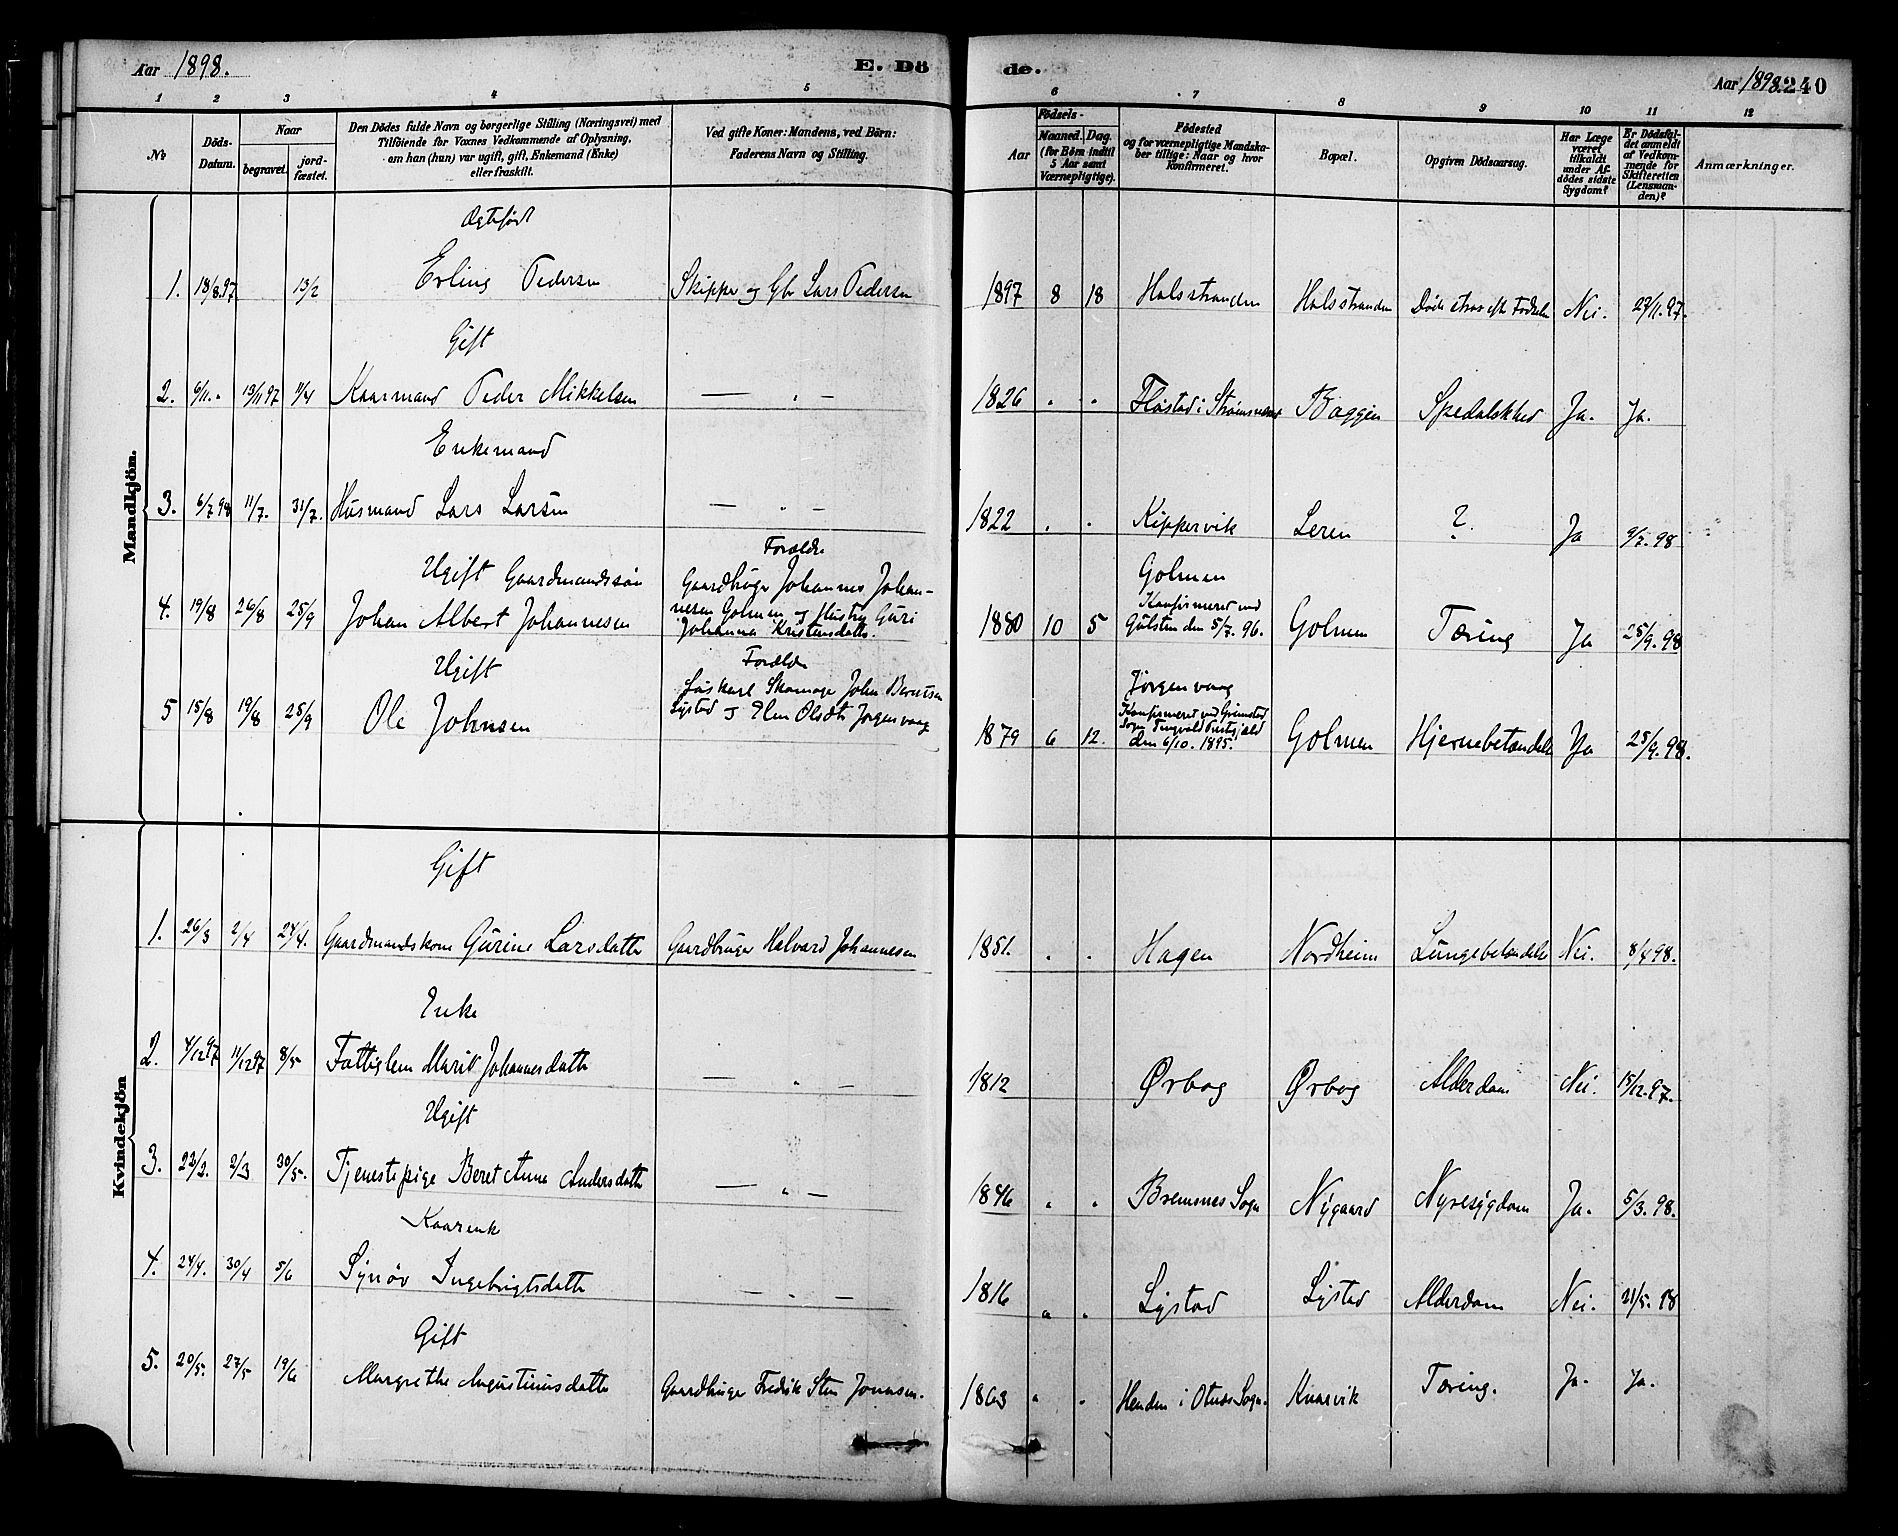 Aar 1898. E. Döde. Aar 1898. 240
1 2 3 4 5 6 7 8 9 10 11 12
No Döds-Datum. Naar begravet. jordfæstet. Den Dödes fulde Navn og borgerlige Stilling (Næringsvei) med Tilföiende for Voxnes Vedkommende af Oplysning, om han (hun) var ugift, gift, Enkemand (Enke) eller fraskilt. Ved gifte Koner: Mandens, ved Börn: Faderens Navn og Stilling. Födsels- Aar Maaned. Dag. (for Börn indtil 5 Aar samt Værnepligtige). Födested og for værnepligtige Mandskaber tillige: Naar og hvor Konfirmeret. Bopæl. Opgiven Dödsaarsag. Har Læge været tilkaldt under Afdödes sidste Sygdom? Er Dödsfaldet anmeldt af Vedkommende for Skifteretten (Lensmanden)? Anmærkninger.
Mandkjön.
Ægtefødt
1. 18/8.97 13/2 Erling Pedersen Skipper og Gbr Lars Pedersen 1897 8 18 Halsstranden Halsstranden Døde strax efter Fødselen Nei. 27/11.97.
Gift
2. 6/11. " 13/11 97 11/4 Kaarmand Peder Mikkelsen — " — 1826 " " Flostad i Strømsneset Baggen Spedalskhed Ja. Ja.
Enkemand
3. 6/7 98 11/7. 31/7. Husmand Lars Larsen — " — 1822 " " Kippervik Leren ? Ja 9/7.98
Ugift Gaardmandssøn Forældre Golmen
4. 19/8 26/8 25/9 Johan Albert Johannesen Gaardbruger Johannes Johannesen Golmen og Hustru Guri Johanna Kristensdatter. 1880 10 5 Konfirmeret ved Gulsten den 5/7.96. Golmen Tæring Ja 25/9.98
Ugift Forældre
5 15/8 19/8 25/9 Ole Johnsen Løskarl Skomager John Berntsen Lystad og Elen Olsdtr Jørgenvaag 1879 6 12. Jørgenvaag Konfirmeret ved Grimstad Sogn Tingvold Præstegjeld den 6/10.1895. Golmen Hjernebetændelse Ja 25/9.98.
Kvindekjön
Gift
1. 26/3 2/4 24/4. Gaardmandskone Gurine Larsdatter Gaardbruger Halvard Johannesen 1851. " " Hagen Nordheim Lungebetændelse Nei. 8/4 98.
Enke
2. 4/12 97 11/12 97 8/5 Fattiglem Marit Johannesdatter — " — 1812 Ørbog Ørbog Alderdom Nei. 15/12.97.
Ugift
3. 23/2. 2/3 30/5. Tjenestepige Beret Anne Andersdatter — " — 1846 " " Bremsnes Sogn Nygaard Nyresygdom Ja. 5/3.98.
Kaarenke
4. 24/4. 30/4 5/6 Synøv Ingebrigtsdatter — " — 1816 " " Lystad Lystad Alderdom Nei. 21/5.98
Gift
5. 20/5. 27/5 19/6 Margrethe Augustinusdatter Gaardbruger Fredrik Sten Jonassen. 1863 " " Henden i Otnes Sogn. Knarvik Tæring. Ja. Ja.